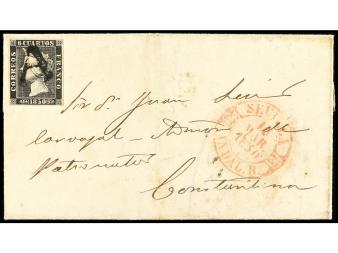 6 CUARTOS
CORREOS
FRANCO
1850
Sr Dn Juan Luis
Carvajal - Admor de
Patronatos
Constantina
SEVILLA
MAR
1850
ANDAL. B.